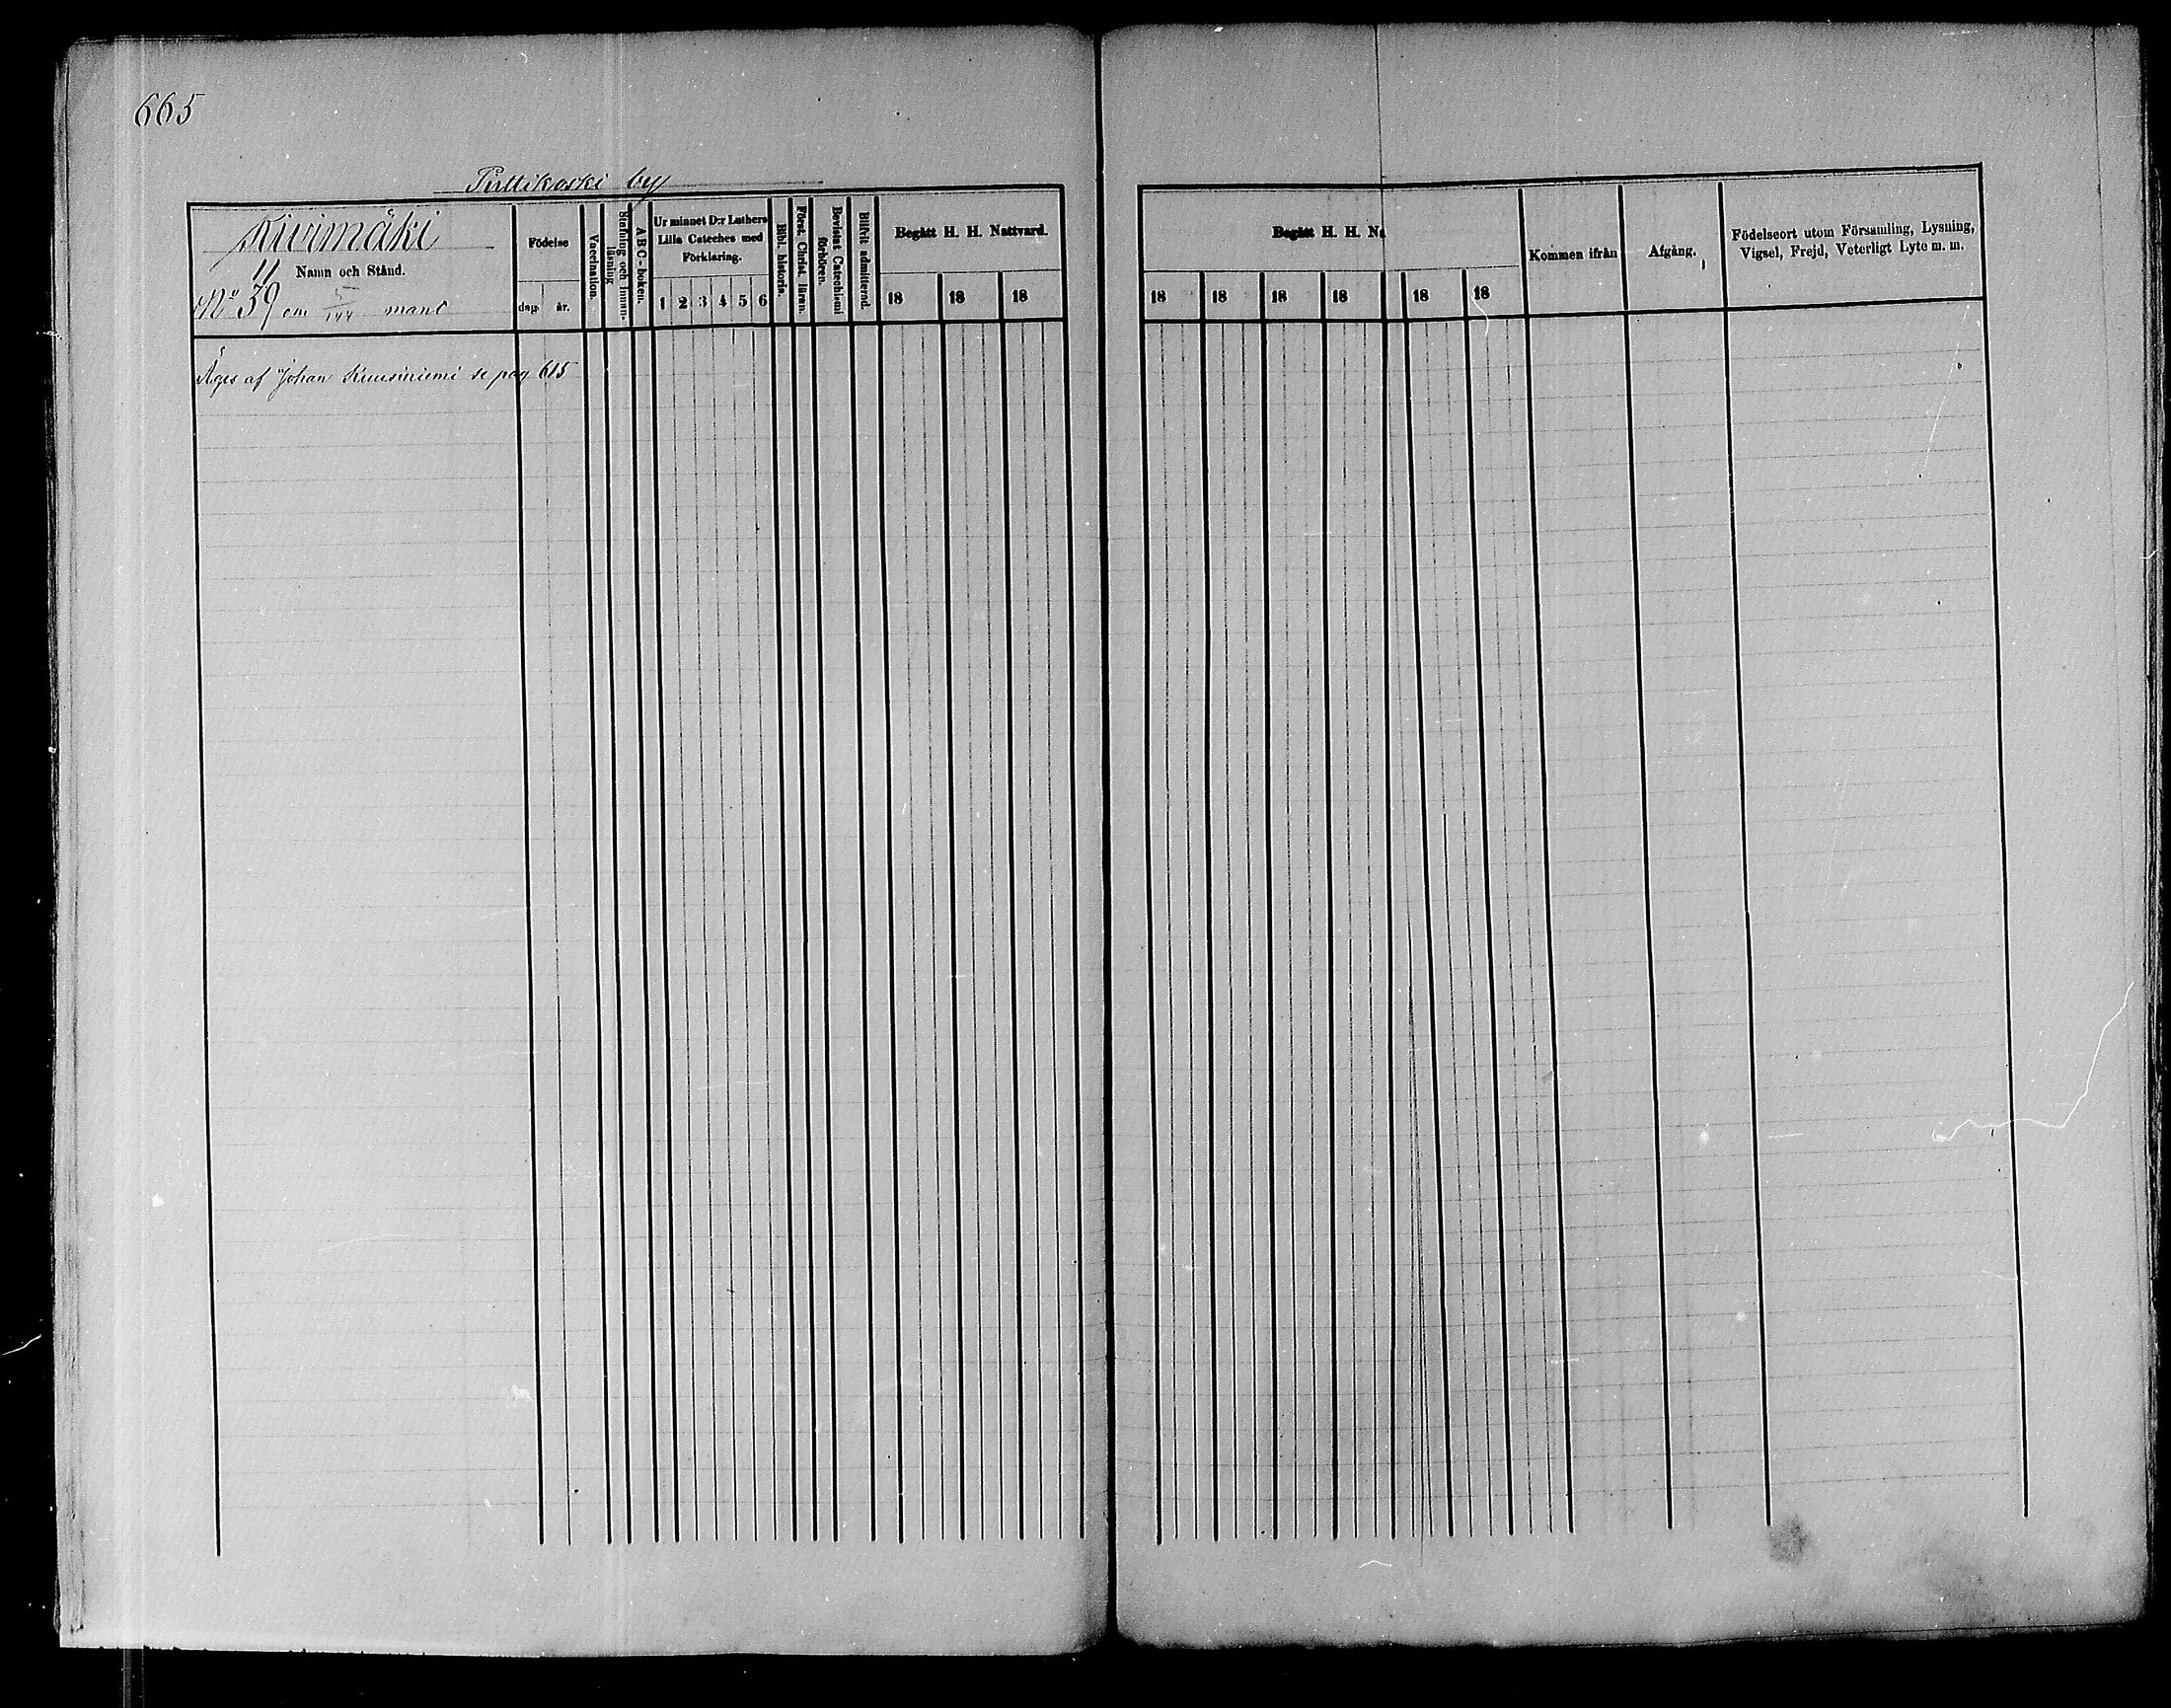 665
Puttikoski by
Kivimäki
Namn och Stånd.
11
No 39 om 5/144 mant
Födelse
dag. år.
Vaccination.
Stafning och Innan-läsning
A B C - boken.
Ur minnet D:r Luthers
Lilla Cateches med
Förklaring.
1 2 3 4 5 6
Bibl. historia.
Först. Christ. läran.
Bevistat Catechismi förhören.
Blifvit admitterad.
Begått H. H. Nattvard.
18 18 18
Äges af Johan Kuusiniemi se pag 615
Begått H. H. Na
18 18 18 18 18 18
Kommen ifrån
Afgång.
Födelseort utom Församling, Lysning,
Vigsel, Frejd, Veterligt Lyte m. m.